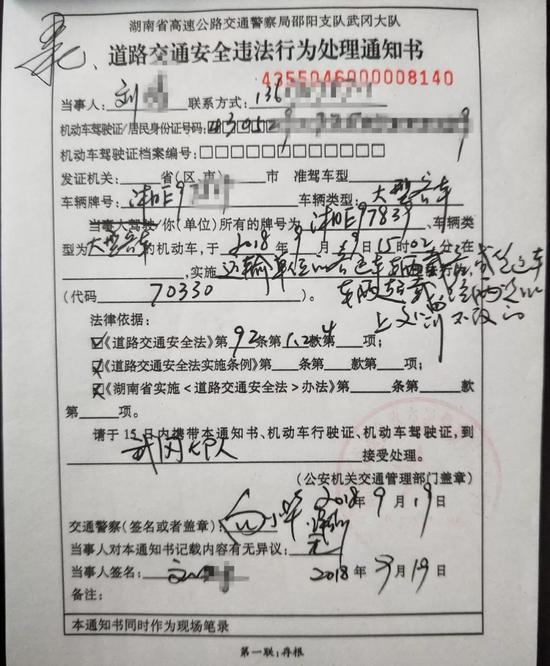 湖南省高速公路交通警察局邵阳支队武冈大队
道路交通安全违法行为处理通知书
4355046000008140
当事人：刘 联系方式：136
机动车驾驶证/居民身份证号码：
机动车驾驶证档案编号：
发证机关： 省（区、市） 市 准驾车型
车辆牌号：湘E97 车辆类型：大型客车
当事人驾驶/你（单位）所有的牌号为湘E97839、车辆类
型为大型客车的机动车，于2018年9月19日15时02分，在
，实施运输单位的客运车辆
（代码 70330 ）。
法律依据：
《道路交通安全法》第92条第1.2款第4项；
《道路交通安全法实施条例》第 条第 款第 项；
《湖南省实施<道路交通安全法>办法》第 条第 款
第 项。
请于15日内携带本通知书、机动车行驶证、机动车驾驶证，到
武冈大队 接受处理。
（公安机关交通管理部门盖章）
2018年9月19日
交通警察（签名或者盖章）：
当事人对本通知书记载内容有无异议：无
当事人签名：刘
2018年9月19日
备注：
本通知书同时作为现场笔录
第一联：存根